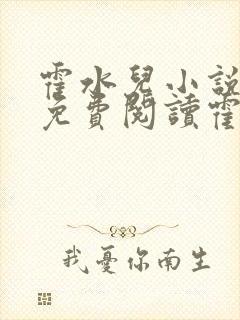 霍水兒小說
免費閱讀霍
我憂你南生